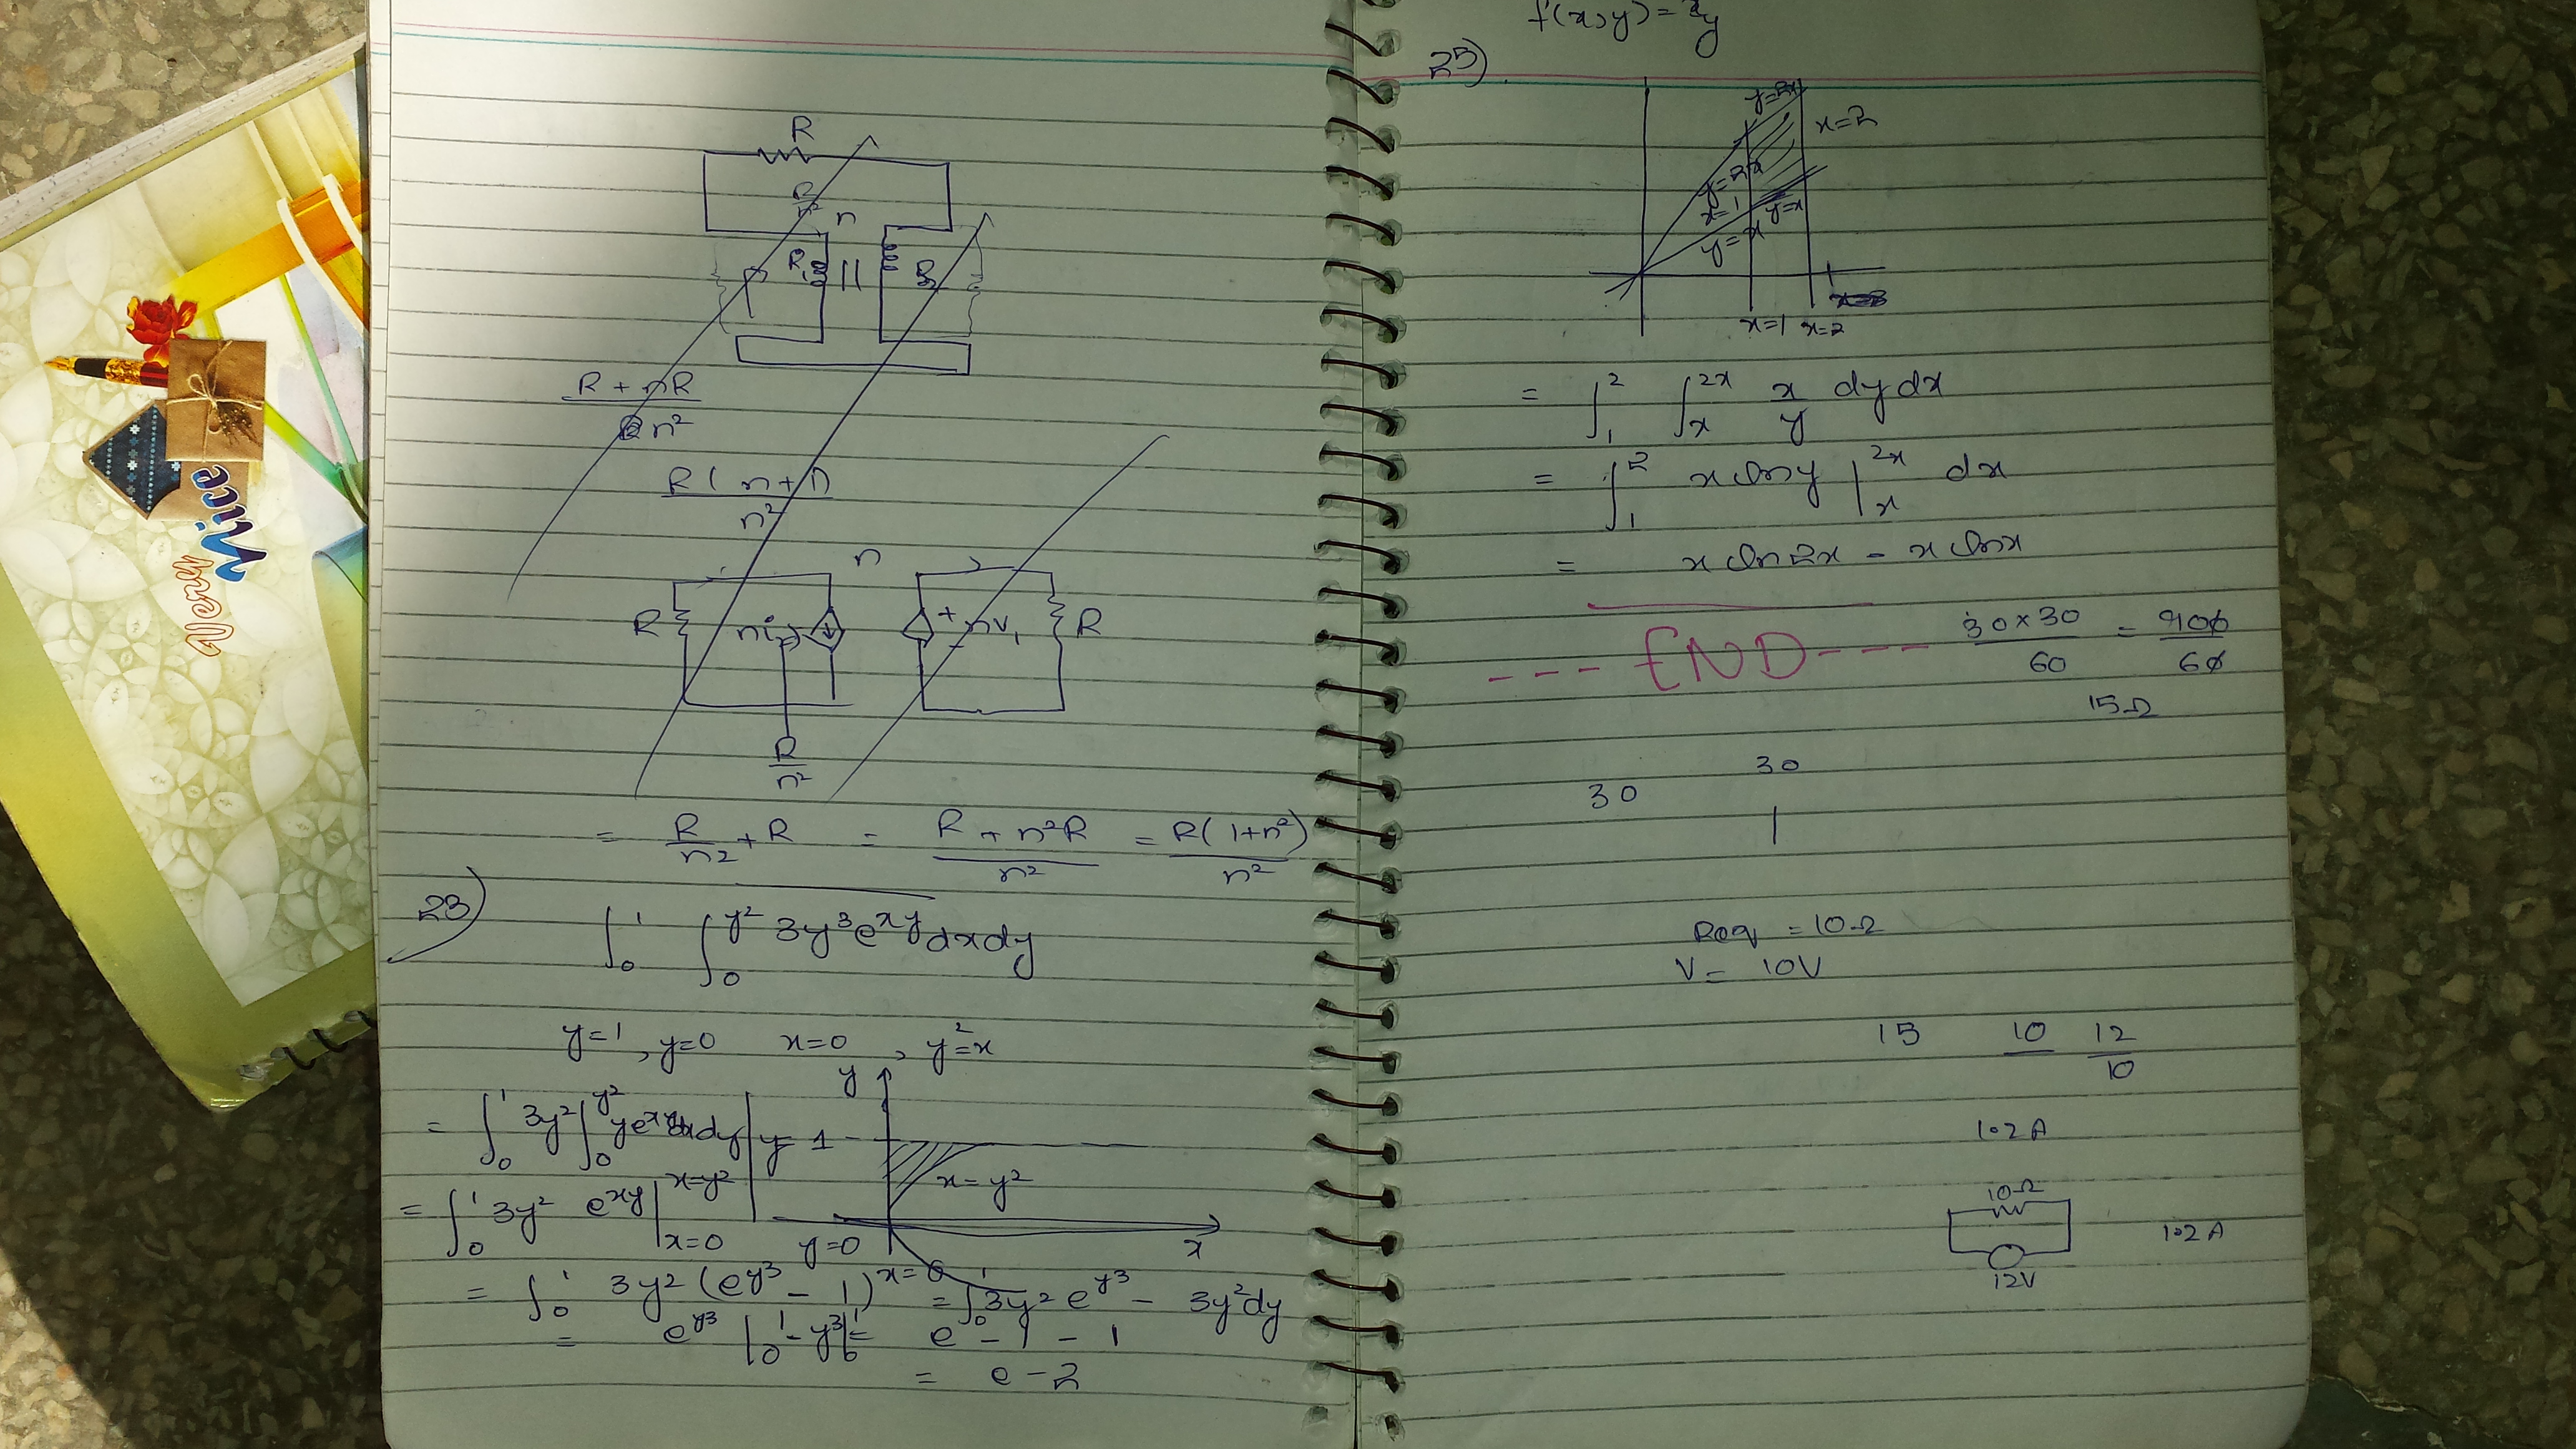 Nice
Memory
R
R/n²
n
R₁
R + nR
n²
R ( n+1)
n²
n
R
ni₂
+
-
nv₁
R
R/n²
= R/n2 + R = R + n²R / n² = R(1+n²) / n²
23)
∫₀¹ ∫₀^y² 3y³e^xy dxdy
y=1, y=0 x=0, y²=x
y
= ∫₀¹ 3y² ∫₀^y² ye^xy dxdy
y= 1
x=y²
= ∫₀¹ 3y² e^xy |x=0 x=y²
y=0
x
x=0
= ∫₀¹ 3y² (e^y³ - 1) = ∫₀¹ 3y² e^y³ - 3y²dy
= e^y³ |₀¹ - y³|₀¹ = e - 1 - 1
= e-2
f(x,y) = x/y
25)
y=2x
x=2
y=2x
x=1
y=x
y=x
x=1 x=2
= ∫₁² ∫ₓ^2x x/y dy dx
= ∫₁² x ln y |ₓ^2x dx
= x ln 2x - x ln x
--- END ---
30×30 / 60 = 900 / 60
15Ω
30
30
Req = 10Ω
V = 10V
15 10 12/10
1.2A
10Ω
1.2A
12V